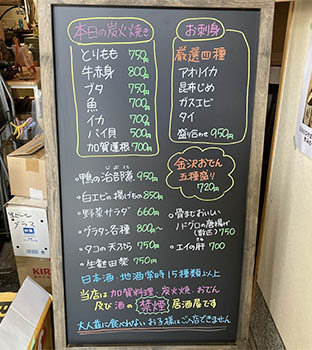 本日の炭火焼き
とりもも 750円
牛赤身 800円
ブタ 750円
魚 700円
イカ 700円
バイ貝 500円
加賀蓮根 700円
お刺身
厳選四種
アオリイカ
昆布じめ
ガスエビ
タイ
盛り合わせ 950円
金沢おでん
五種盛り
720円
じぶに
・鴨の治部煮 950円
・白エビの揚げもの 850円
・野菜サラダ 660円
・グラタン各種 800円〜
・タコの天ぷら 750円
・生麩田楽 750円
・骨までおいしい
ノドグロの唐揚げ
(数匹) 750
・エイの肝 700
日本酒・地酒常時15種類以上
当店は加賀料理、炭火焼、おでん
及び酒の禁煙居酒屋です
大人量に食べれないお子様はご入店できません
KIRIN